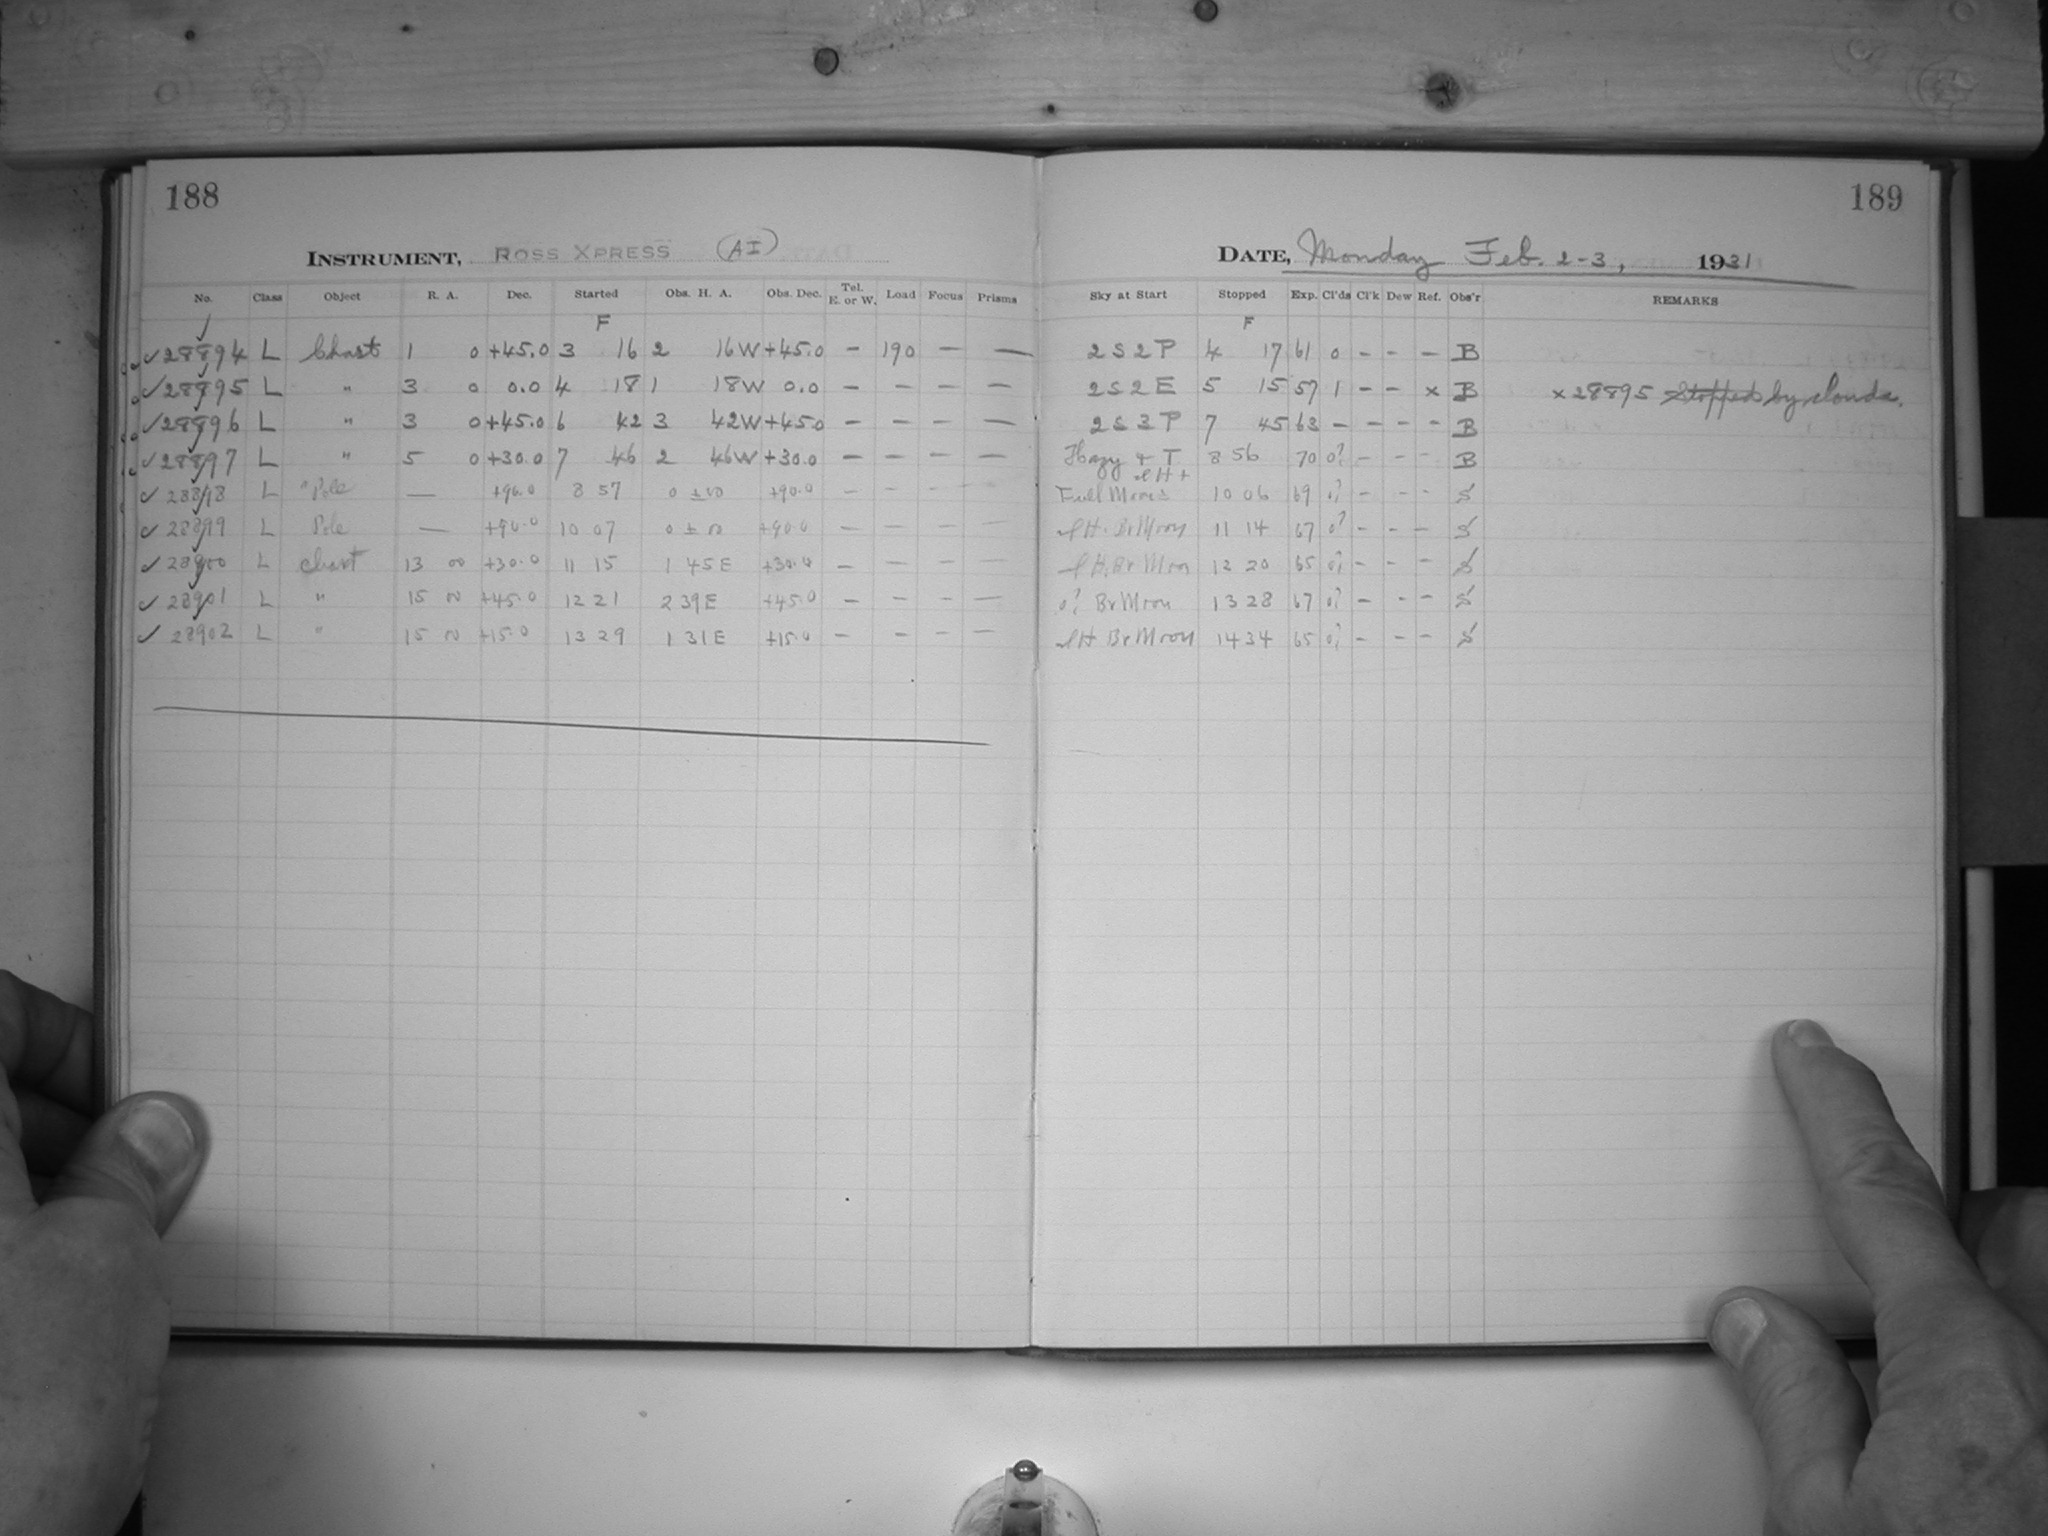 188
INSTRUMENT, ROSS XPRESS (AI)
No. Class Object R. A. Dec. Started Obs. H. A. Obs. Dec. Tel. E. or W. Load Focus Prisms
F
✓28894 L Chart 1 0 +45.0 3 16 2 16W +45.0 — 190 — —
✓28895 L " 3 0 0.0 4 18 1 18W 0.0 — — — —
✓28896 L " 3 0 +45.0 6 42 3 42W +45.0 — — — —
✓28897 L " 5 0 +30.0 7 46 2 46W +30.0 — — — —
✓28898 L "Pole — +90.0 8 57 0 ± 00 +90.0 — — — —
✓28899 L Pole — +90.0 10 07 0 ± 00 +90.0 — — — —
✓28900 L Chart 13 00 +30.0 11 15 1 45E +30.0 — — — —
✓28901 L " 15 00 +45.0 12 21 2 39E +45.0 — — — —
✓28902 L " 15 00 +15.0 13 29 1 31E +15.0 — — — —
189
DATE, Monday Feb. 2-3, 1931
Sky at Start Stopped Exp. Cl'ds Cl'k Dew Ref. Obs'r REMARKS
F
2 S 2 P 4 17 61 0 - - - B
2 S 2 E 5 15 57 1 - - x B x 28895 Stopped by clouds.
2 S 3 P 7 45 63 - - - - B
Hazy + T 8 56 70 0? - - - B
Full Moon 10 06 69 0? - - - S
Br Moon 11 14 67 0? - - - S
Br Moon 12 20 65 0? - - - S
0? Br Moon 13 28 67 0? - - - S
Br Moon 14 34 65 0? - - - S